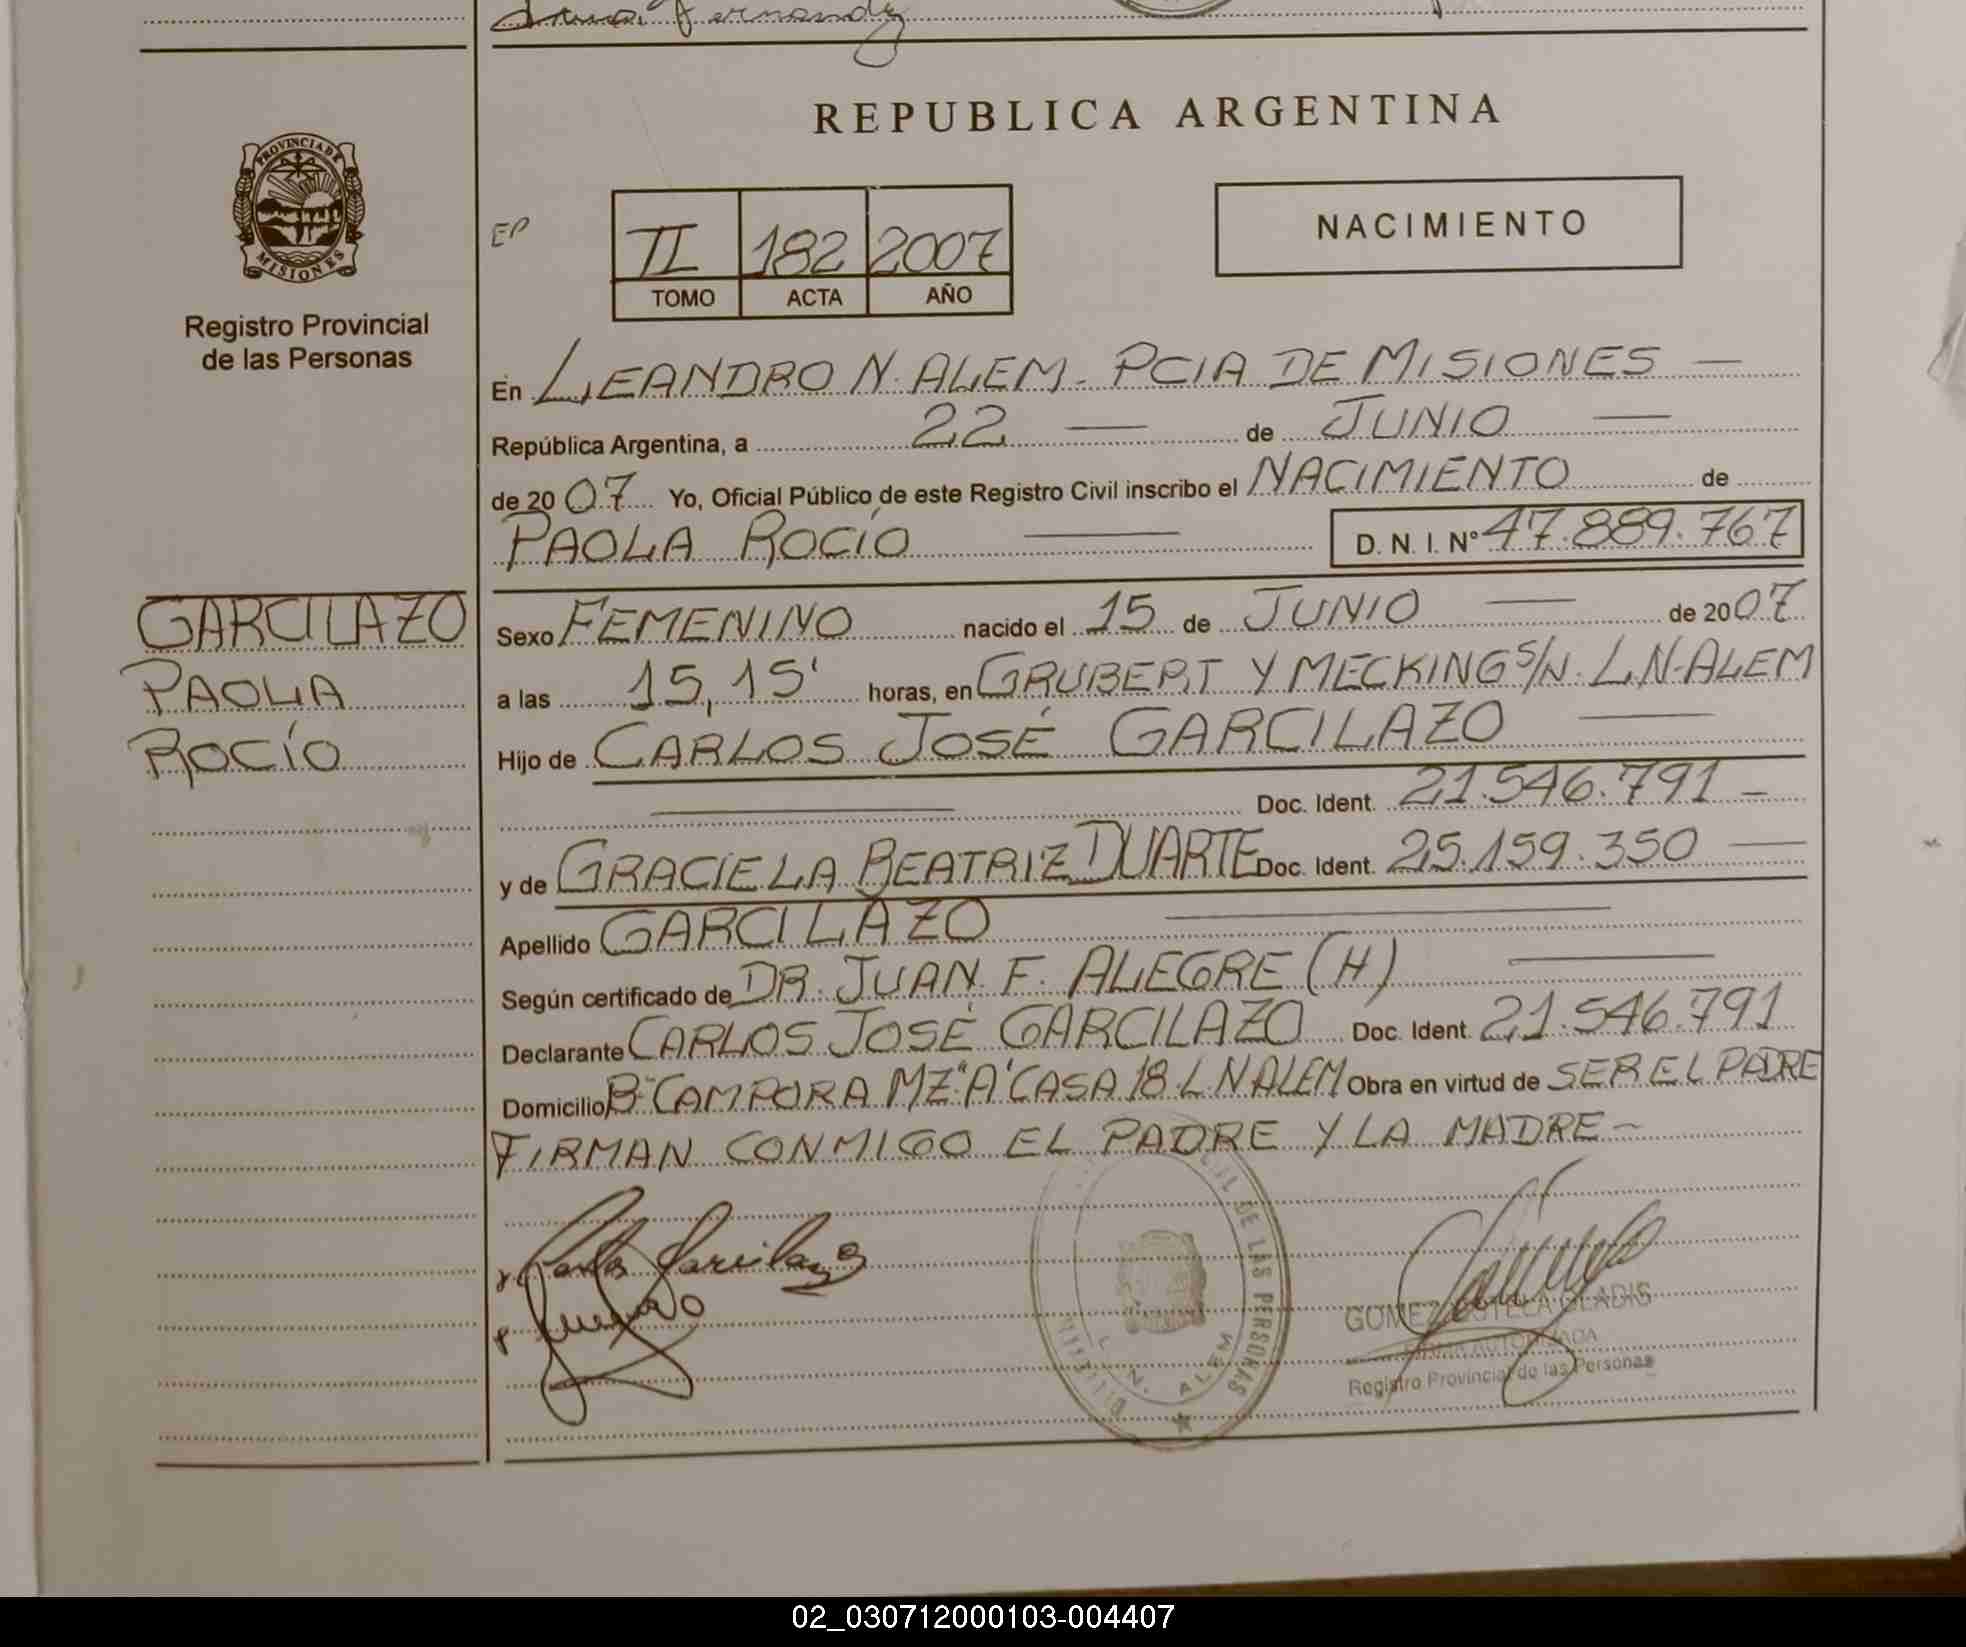 Fernandez
REPUBLICA ARGENTINA
PROVINCIA DE
MISIONES
Registro Provincial
de las Personas
EP
II 182 2007
TOMO ACTA AÑO
NACIMIENTO
En LEANDRO N. ALEM - PCIA DE MISIONES —
República Argentina, a 22 — de JUNIO —
de 2007 Yo, Oficial Público de este Registro Civil inscribo el NACIMIENTO de
PAOLA ROCÍO — D. N. I. Nº 47.889.767
GARCILAZO
PAOLA
ROCÍO
Sexo FEMENINO nacido el 15 de JUNIO — de 2007
a las 15,15' horas, en GRUBERT Y MECKING S/N. L.N.ALEM
Hijo de CARLOS JOSÉ GARCILAZO —
— Doc. Ident. 21.546.791 -
y de GRACIELA BEATRIZ DUARTE Doc. Ident. 25.159.350 —
Apellido GARCILAZO —
Según certificado de DR. JUAN F. ALEGRE (H) —
Declarante CARLOS JOSÉ GARCILAZO Doc. Ident. 21.546.791
Domicilio Bº CAMPORA MZ "A" CASA 18 L N ALEM Obra en virtud de SER EL PADRE
FIRMAN CONMIGO EL PADRE Y LA MADRE -
Carlos Garcilazo
DE LAS PERSONAS
L. N. ALEM
GOMEZ GLADIS
FIRMA AUTORIZADA
Registro Provincial de las Personas
02_030712000103-004407